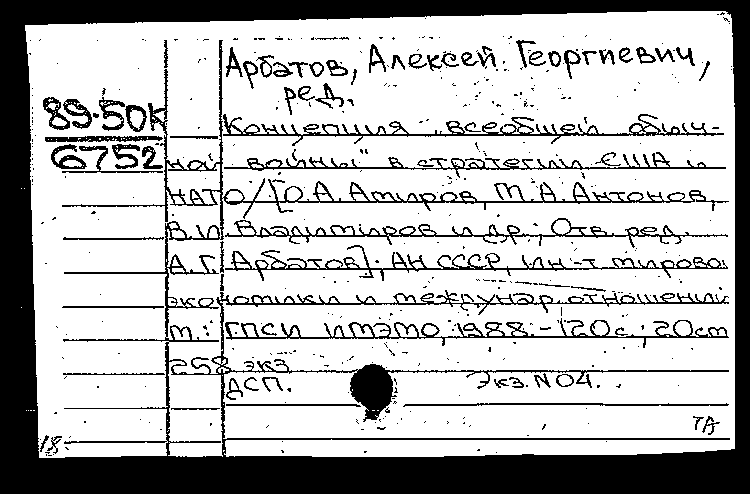 Арбатов, Алексей Георгиевич,
ред.
89-50К
6752
Концепция "всеобщей обыч-
ной войны" в стратегии США и
НАТО / [О.А. Амиров, М.А. Антонов,
В.И. Владимиров и др.; Отв. ред.
А.Г. Арбатов]; АН СССР, Ин-т мировой
экономики и междунар отношений
М.: ГПСИ ИМЭМО, 1988.-120с.; 20см
258 экз
ДСП. Экз. N04.
ТА
18-